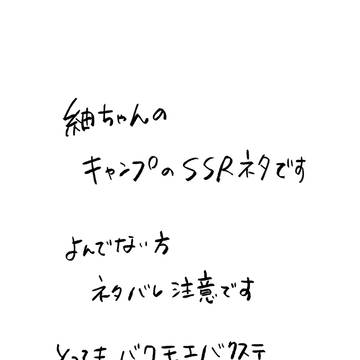 紬ちゃんの
キャンプのSSRネタです
よんでない方
ネタバレ注意です
とってもバクモエバクステ